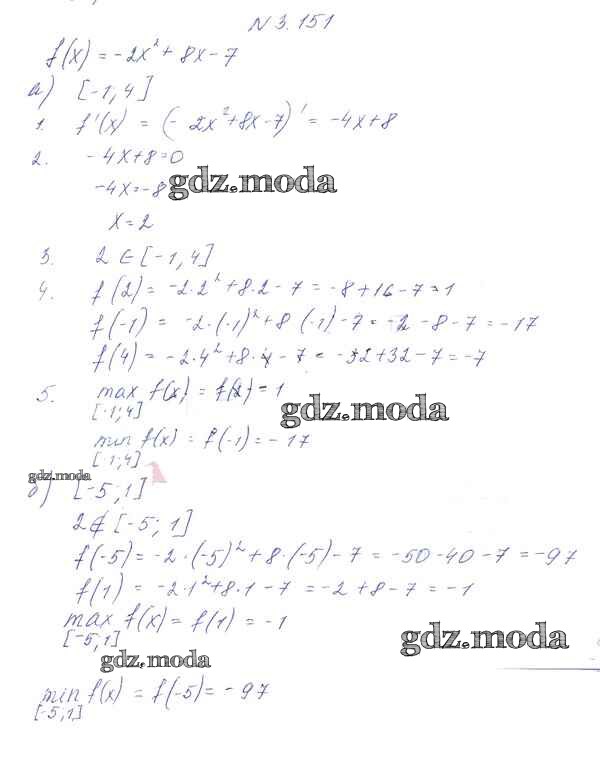 N 3.151
f(x) = -2x² + 8x - 7
а) [-1; 4]
1. f'(x) = (-2x²+8x-7)' = -4x+8
2. -4x+8=0
-4x=-8
gdz.moda
x=2
3. 2 ∈ [-1; 4]
4. f(2) = -2·2²+8·2-7 = -8+16-7=1
f(-1) = -2·(-1)²+8(-1)-7 = -2-8-7 = -17
f(4) = -2·4²+8·4-7 = -32+32-7 = -7
5. max f(x) = f(2) = 1
[-1;4]
gdz.moda
min f(x) = f(-1) = -17
[-1;4]
gdz.moda
б) [-5; 1]
2 ∉ [-5; 1]
f(-5) = -2·(-5)²+8·(-5)-7 = -50-40-7 = -97
f(1) = -2·1²+8·1-7 = -2+8-7 = -1
max f(x) = f(1) = -1
[-5;1]
gdz.moda
gdz.moda
min f(x) = f(-5) = -97
[-5;1]